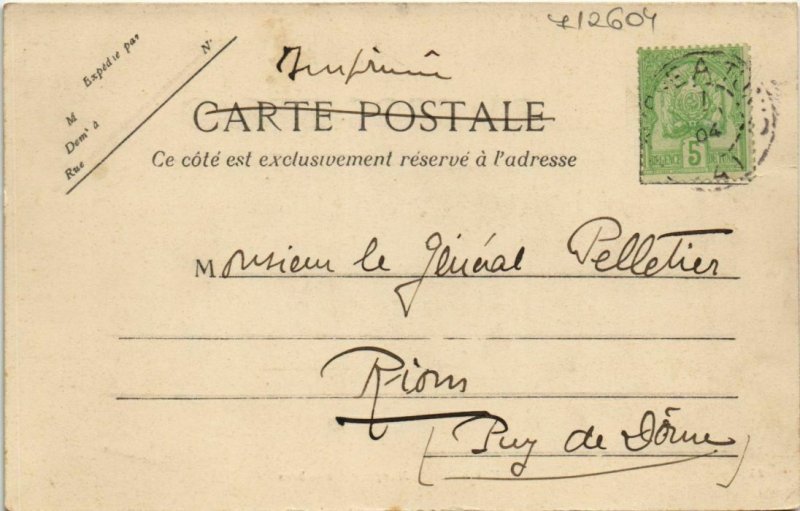 712604
Expédié par
N°
M
Demt à
Rue
Imprimé
CARTE POSTALE
Ce côté est exclusivement réservé à l'adresse
04
4
5
Monsieur le Général Pelletier
Riom
(Puy de Dôme)